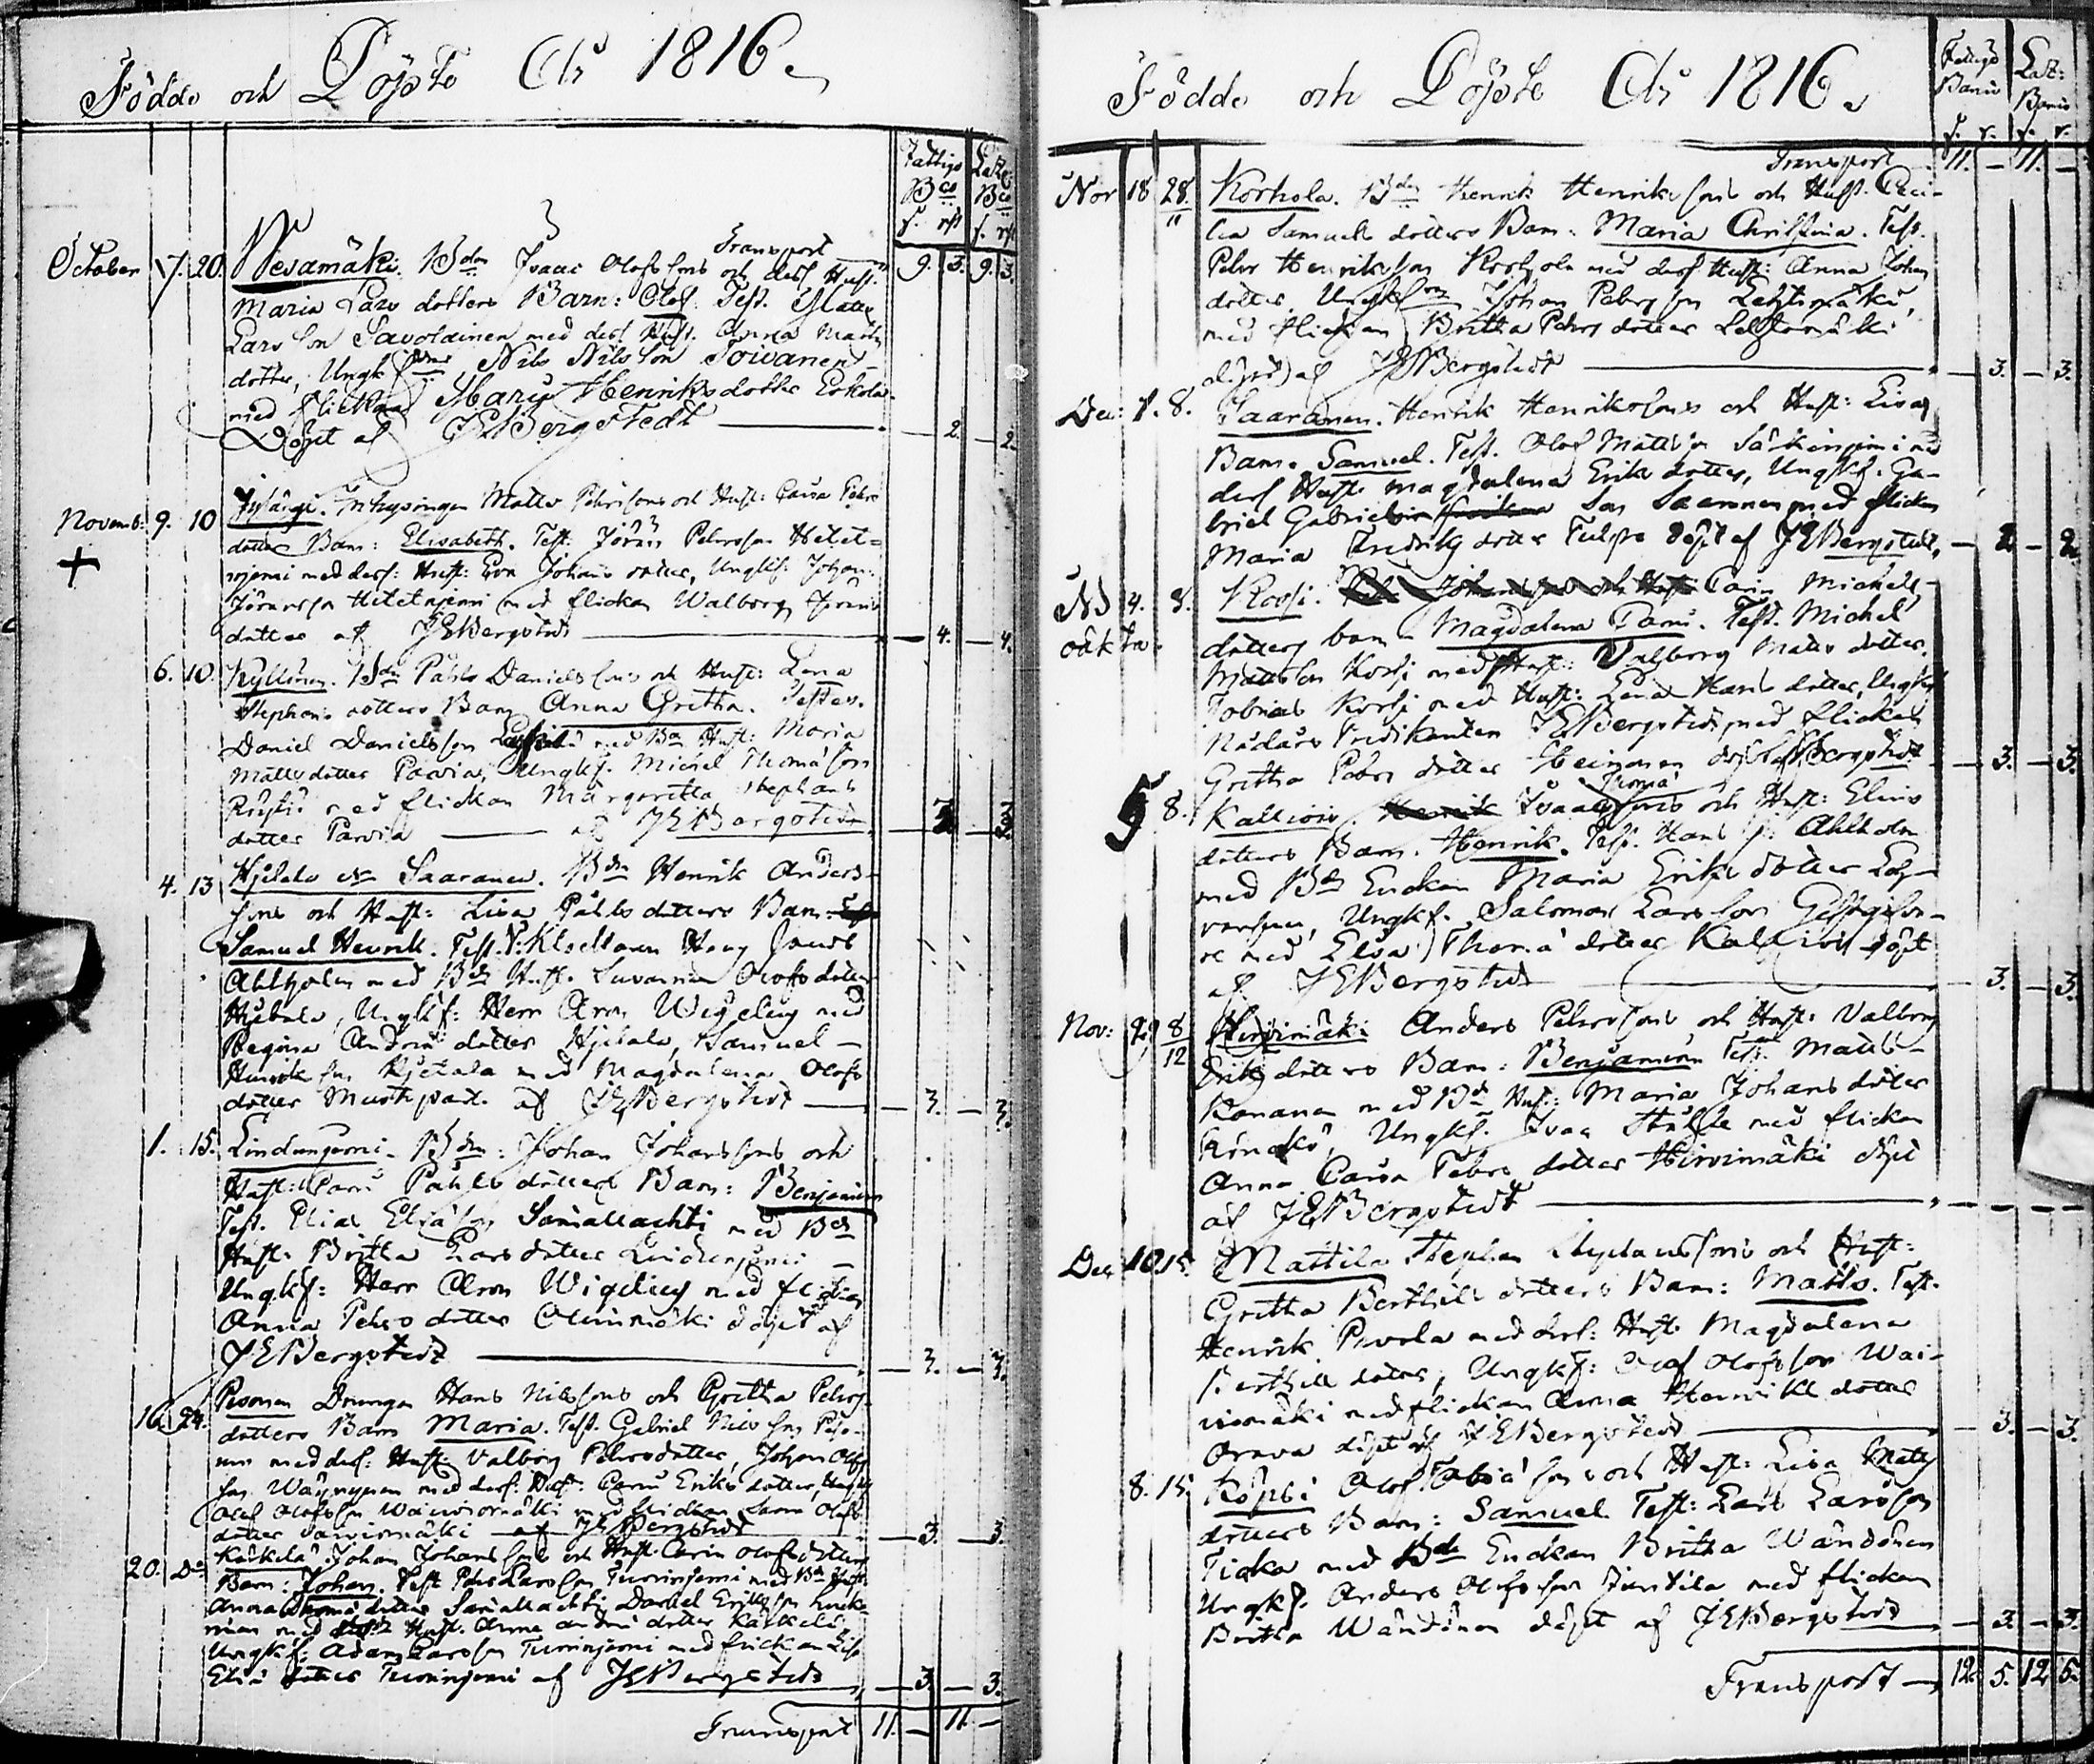 Födde och Döpte Åhr 1816.
Fattigs Lazr:
Bco Bco
f. rst f. rst
Transport
9. 3. 9. 3.
October 17. 20. Vesamäki. Bdn Isaac Olofssons och dess Hust.
Maria Lars dotters Barn: Olof. Test. Matts
Larsson Savolainen med dess Hust. Anna Matts
dotter, Ungk Nils Nilsson Toivanen
med flickan Maria Henriksdotter Eskola
Döpt af JEBergstedt — 2. — 2.
Novemb: 9. 10 Inhysingen Matts Pehrssons och Hust: Caisa Pehrs
dotters Barn: Elisabeth. Test: Jöran Pehrsson Hetet=
njemi med dess: Hust: Eva Johans dotter, Ungkf: Johan
+
Jöransson Hetetnjemi med flickan Walborg Jörans
dotter af JEBergstedt — 4. — 4.
6. 10. Kyllönen. Bdn Påhls Danielssons och Hust: Lena
Stephans dotters Barn Anna Gretha. Testes.
Daniel Danielsson med Bdn Hust: Maria
Matts dotter Parvia, Ungkf. Michel Thomasson
med flickan Margaretha Stephans
dotter Parvia — af JEBergstedt — 3. — 3.
4. 13 Hjetala Saaranen. Bdn Henrik Anders-
sons och Hust: Lisa Påhls dotters Barn:
Samuel Henrik. Test. V: Klockaren Hans Jacob
Ahlholm med Bds Hust. Susanna Olofs dotter
Hjetala, Ungkf: Herr Aron Wigelius med
Regina Anders dotter Hjetala, Samuel
Henriksson Hjetala med Magdalena Olofs
dotter Mustapart. af JEBergstedt — 3. — 3.
1. 15. Lindunjemi. Bdn: Johan Johanssons och
Hust: Carin Påhls dotters Barn: Benjamin
Test. Elias Eliasson Sarialachti med Bds
Hust: Britha Lars dotter Lindunjemi —
Ungkf: Herr Aron Wigelius med flickan
Anna Pehrs dotter Oiinimäki döpt af
JEBergstedt — 3. — 3.
16. 24. Rosonen Drängen Hans Nilssons och Gretha Pehrs
dotters Barn Maria. Test. Gabriel Nilsson
med dess: Hust: Valborg Pehrsdotter, Johan Olofs
son Wäyrynen med dess: Hust: Carin Eriks dotter, Ungkf
Olof Olofsson Waiviomäki med flickan Sara Olofs
dotter Saviomäki af JEBergstedt — 3. — 3.
20. Do Kärkelä Johan Johanssons och Hust. Carin Olofsdotters
Barn: Johan. Test Pehr Larsson Turrinjemi med Bds Hust:
Anna Thoma dotter Sarialachti Daniel Eriksson
med Hust. Anna Anders dotter Kärkelä
Ungkf: Adam Larsson Turrinjemi med flickan Lisa
Elia dotter Turrinjemi af JEBergstedt — 3. — 3.
Transport 11. — 11. —
Födde och Döpte Åhr 1816.
Fattigs Lazr:
Banco Banco
f. r. f. r.
Transport 11. — 11. —
Nov 18 28/11 Korhola. Bdn Henrik Henrikssons och Hust. Ceci-
lia Samuels dotters Barn: Maria Christina. Test.
Pehr Henriksson Korhola med dess Hust: Anna Johans
dotter, Ungkf Johan Pehrsson Lehtomäki,
med flickan Britha Pehrs dotter Lehtomäki
döpt af JEBergstedt — 3. — 3.
Dec: 1. 8. Saaranen. Henrik Henrikssons och Hust: Lisas
Barn. Samuel. Test. Olof Mattsson Särkinjemi med
dess Hust. Magdalena Eriks dotter, Ungkf. Ga-
briel Gabriels son Saarinen med flickan
Maria Fredriks dotter döpt af JEBergstedt — 2. — 2.
NB 4. 8. Korsi. Carin Michels
oäkta. dotters barn Magdalena Carin. Test. Michel
Mattsson Korsi med Hust: Valborg Matts dotter,
Tobias Korsi med Hust: Lena Hans dotter, Ungkf
Nådårs Predikanten JEBergstedt med flickan
Gretha Pehrs dotter Heinonen döpt af JEBergstedt — 3. — 3.
5 8. Kallioin. Henrik Isaac Thoma sons och Hust: Elins
dotters Barn. Henrik. Test. Hans J: Ahlholm
med Bds Enckan Maria Eriks dotter
Ungkf. Salomon Larsson Gestgifva-
re med Elsa Thoma dotter Kallioin döpt
af JEBergstedt — 3. — 3.
Nov: 29 8/12 Hirvimäki Anders Pehrssons och Hust: Valborg
Eriks dotters Barn: Benjamin Test. Matts
Kananen med Bds Hust: Maria Johans dotter
Könökö, Ungkf. Isac med flickan
Anna Caisa Pehrs dotter Hirvimäki döpt
af JEBergstedt — — — —
Dec 10. 15. Mattila Stephan Stephanssons och Hust:
Gretha Berthils dotters Barn: Matts. Test.
Henrik Pavola med dess: Hust: Magdalena
Berthils dotter, Ungkf: Olof Olofsson Wai-
viomäki med flickan Anna Henriks dotter
Orava döpt af JEBergstedt — 3. — 3.
8. 15. Köpsi Olof Tobiassons och Hust: Lisa Matts
dotters Barn: Samuel. Test: Lars Larsson
Ticka med Bds Enckan Britha Wändänen
Ungkf. Anders Olofsson Juntila med flickan
Britha Wändänen döpt af JEBergstedt — 3. — 3.
Transport — 12. 5. 12. 5.